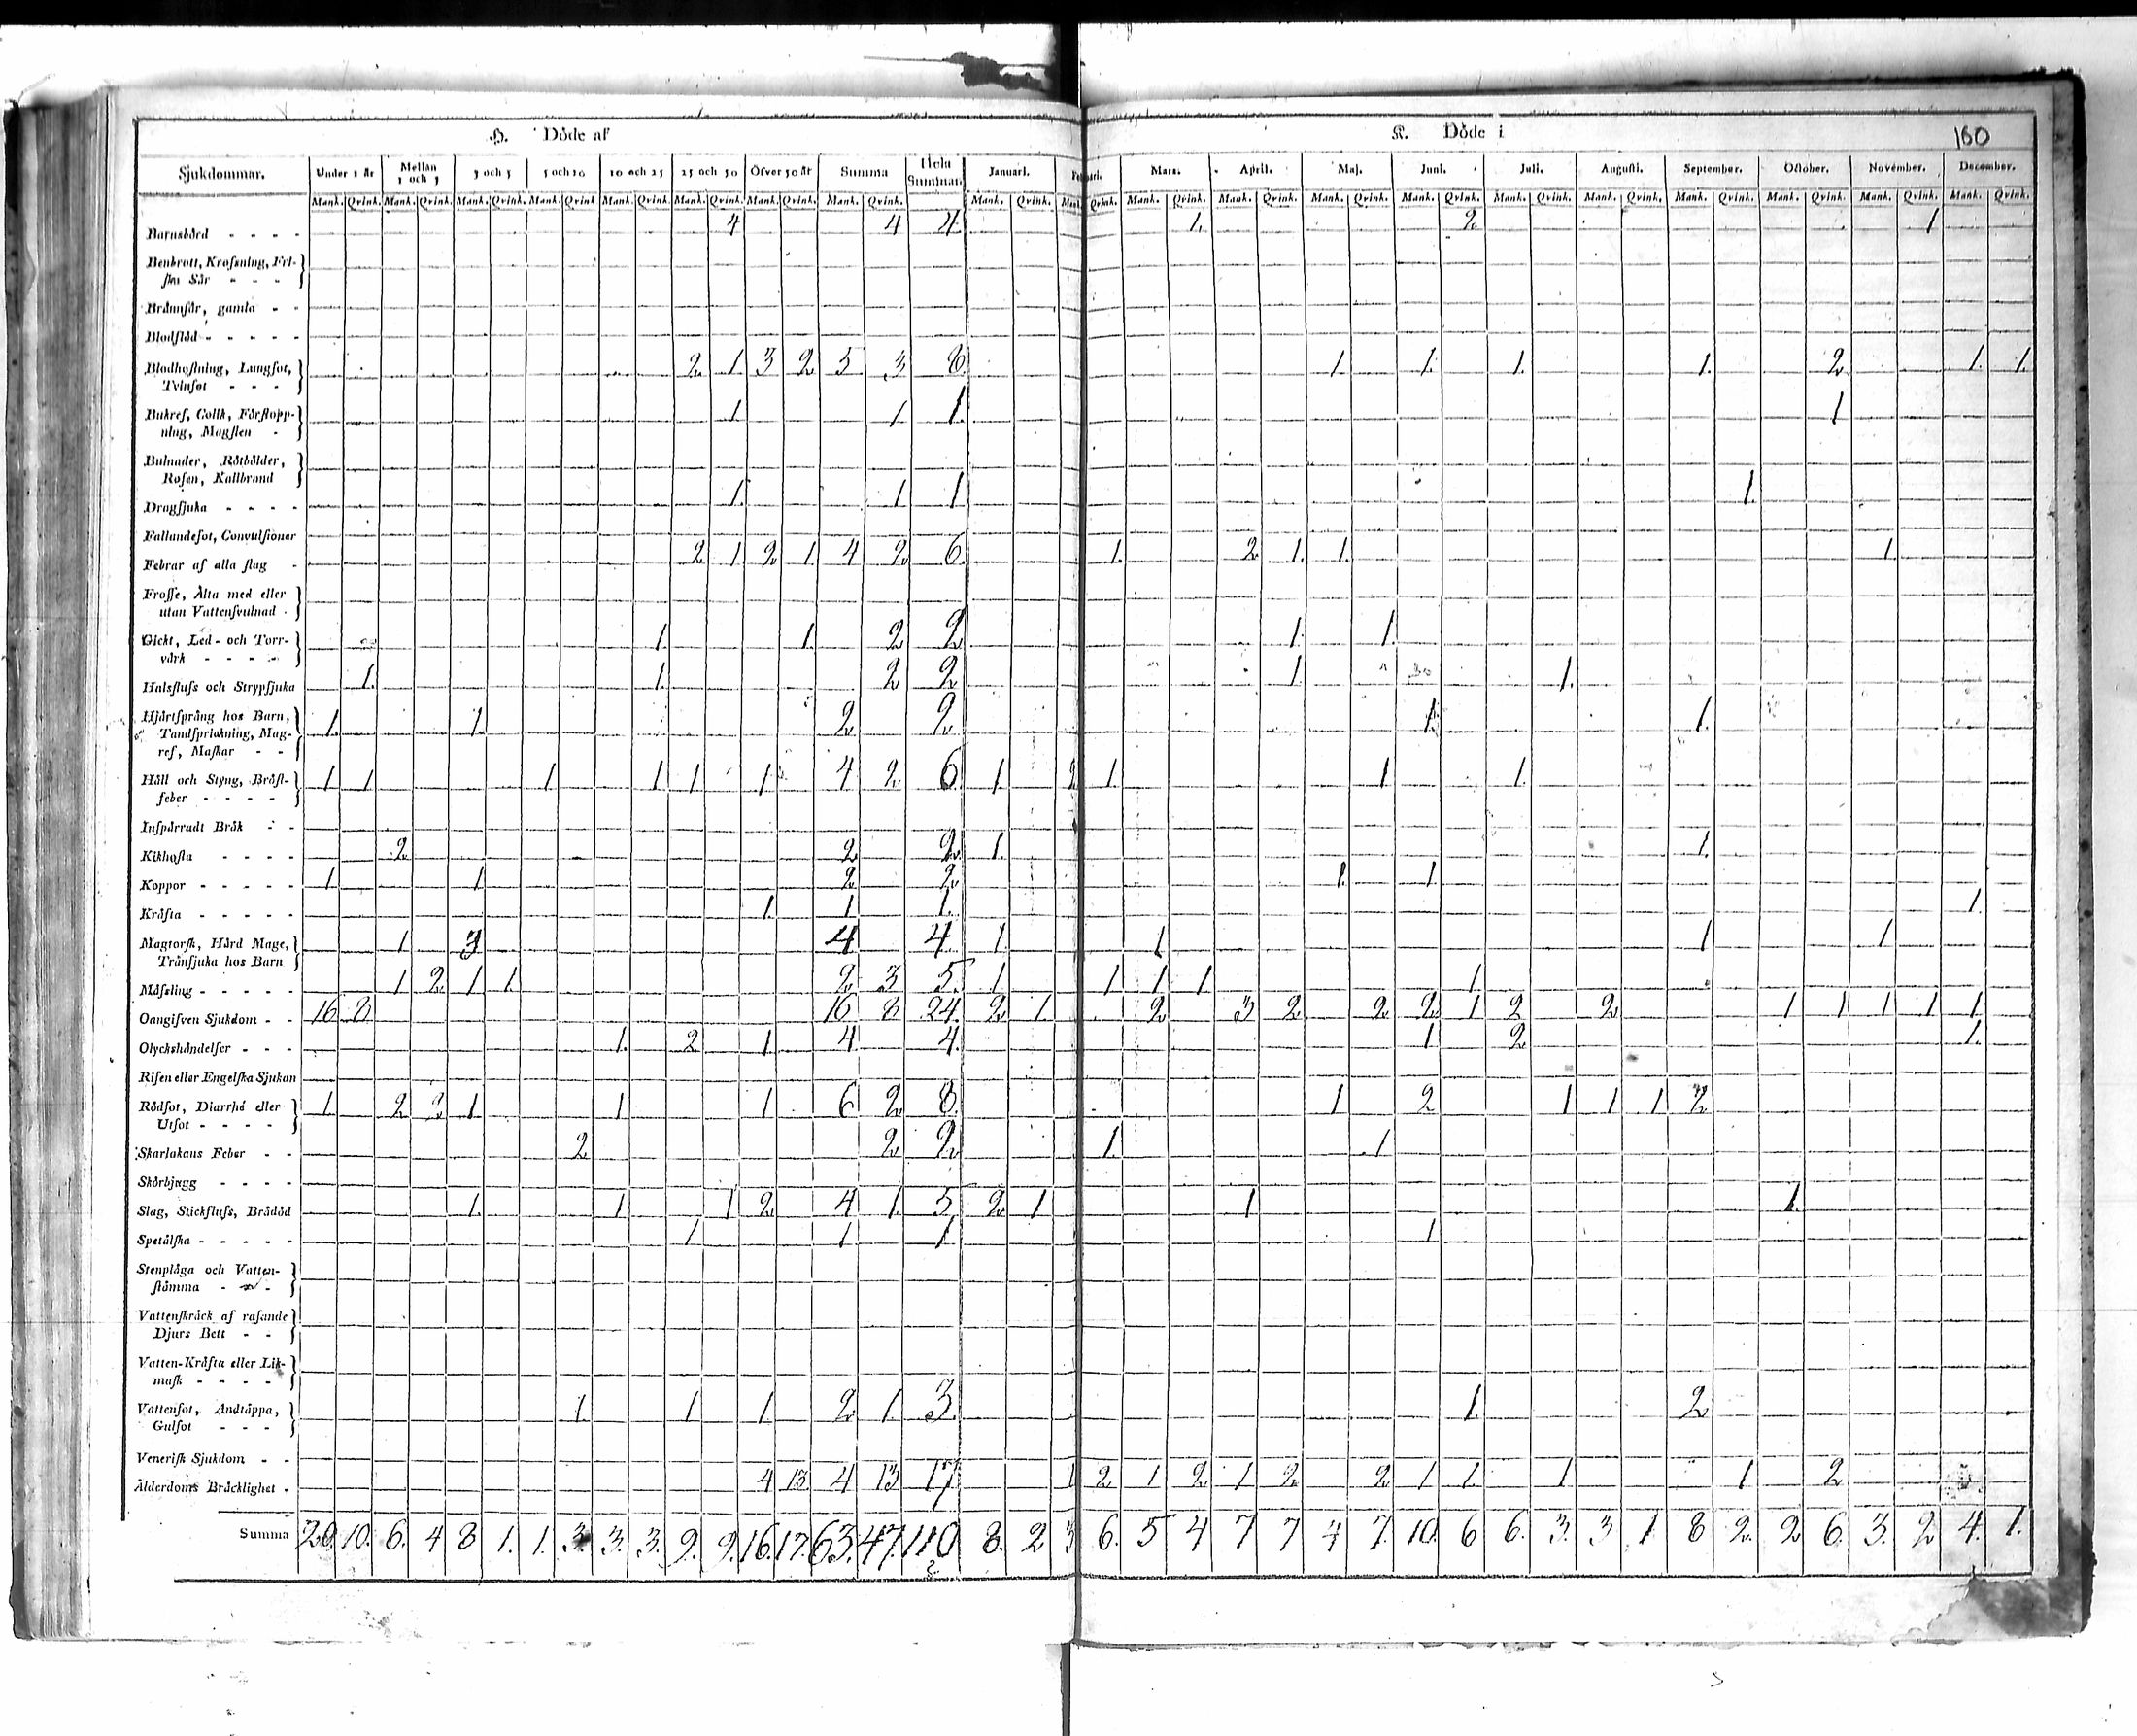 H. Döde af K. Döde i 160
Sjukdommar. Under 1 år Mellan 1 och 3 3 och 5 5 och 10 10 och 25 25 och 50 Öfver 50 år Summa Hela Summan. Januari. Mars. April. Maj. Juni. Juli. Augusti. September. October. November. December.
Mank. Qvink. Mank. Qvink. Mank. Qvink. Mank. Qvink Mank. Qvink. Mank. Qvink. Mank. Qvink. Mank. Qvink. Mank. Qvink. Mank. Qvink. Mank. Qvink. Mank. Qvink. Mank. Qvink. Mank. Qvink. Mank. Qvink. Mank. Qvink. Mank. Qvink. Mank. Qvink. Mank. Qvink. Mank. Qvink.
Barnsbörd - - - - 4 4 4. 1. 2. 1
Benbrott, Krofsning, Fri-
ska Sår - - -
Brännsår, gamla - -
Blodflöd - - - - -
Blodhostning, Lungsot, 2 1 3 2 5 3 8. 1 1. 1. 1. 2 1. 1.
Tvinsot - - -
Bukref, Colik, Förstopp- 1 1 1. 1
ning, Magsten -
Bulnader, Rötbölder,
Rosen, Kallbrand
Dragsjuka - - - - 1. 1 1 1.
Fallandesot, Convulsioner
Febrar af alla slag - 2 1 2 1. 4 2 6. 1. 2 1. 1. 1.
Frossa, Älta med eller
utan Vattensvulnad -
Gickt, Led- och Torr- 1. 1. 2 2 1. 1.
värk - - - -
Halsfluss och Strypsjuka 1. 1. 2 2 1. 1.
Hjärtsprång hos Barn, 1. 1. 2 2. 1. 1.
Tandsprickning, Mag-
ref, Maskar - -
Håll och Styng, Bröst- 1 1 1 1 1 1 4 2 6 1. 2 1. 1 1.
feber - - - -
Inspärradt Bråk - -
Kikhosta - - - - 2 2 2. 1. 1.
Koppor - - - - - 1 1 2 2 1. 1
Kräfta - - - - - 1. 1 1. 1.
Magtorsk, Hård Mage, 1 3 4 4 1 1 1 1
Tränsjuka hos Barn
Mässling - - - - - 1 2 1 1. 2 3 5. 1 1 1 1 1
Oangifven Sjukdom - - 16 8 16 8 24. 2 1. 2 3 2 2 2 1 2 2 1 1 1 1 1
Olyckshändelser - - - 1. 2 1. 4. 4. 1 2. 1.
Risen eller Engelska Sjukan
Rödsot, Diarrhé eller 1. 2 2 1. 1 1 6 2 8. 1 2 1 1 1 2
Utsot - - - -
Skarlakans Feber - - 2 2 2 1. 1
Skörbjugg - - - -
Slag, Stickfluss, Brådöd 1. 1 1 2. 4 1. 5 2 1 1 1.
Spetälska - - - - - 1 1. 1 1
Stenplåga och Vatten-
stämma - - -
Vattenskräck af rasande
Djurs Bett - -
Vatten-Kräfta eller Lik-
mask - - - -
Vattensot, Andtäppa, 1. 1 1. 2. 1. 3. 1. 2
Gulsot - - -
Venerisk Sjukdom - -
Ålderdoms Bräcklighet - 4 13 4 13 17. 1 2 1 2 1 2 2 1 1. 1 1 2
Summa 20. 10. 6. 4 8 1. 1. 3. 3. 3. 9. 9. 16. 17. 63. 47. 110 8. 2 3 6. 5 4 7 7 4 7. 10. 6 6. 3. 3 1 8 2. 2 6. 3. 2 4. 1.